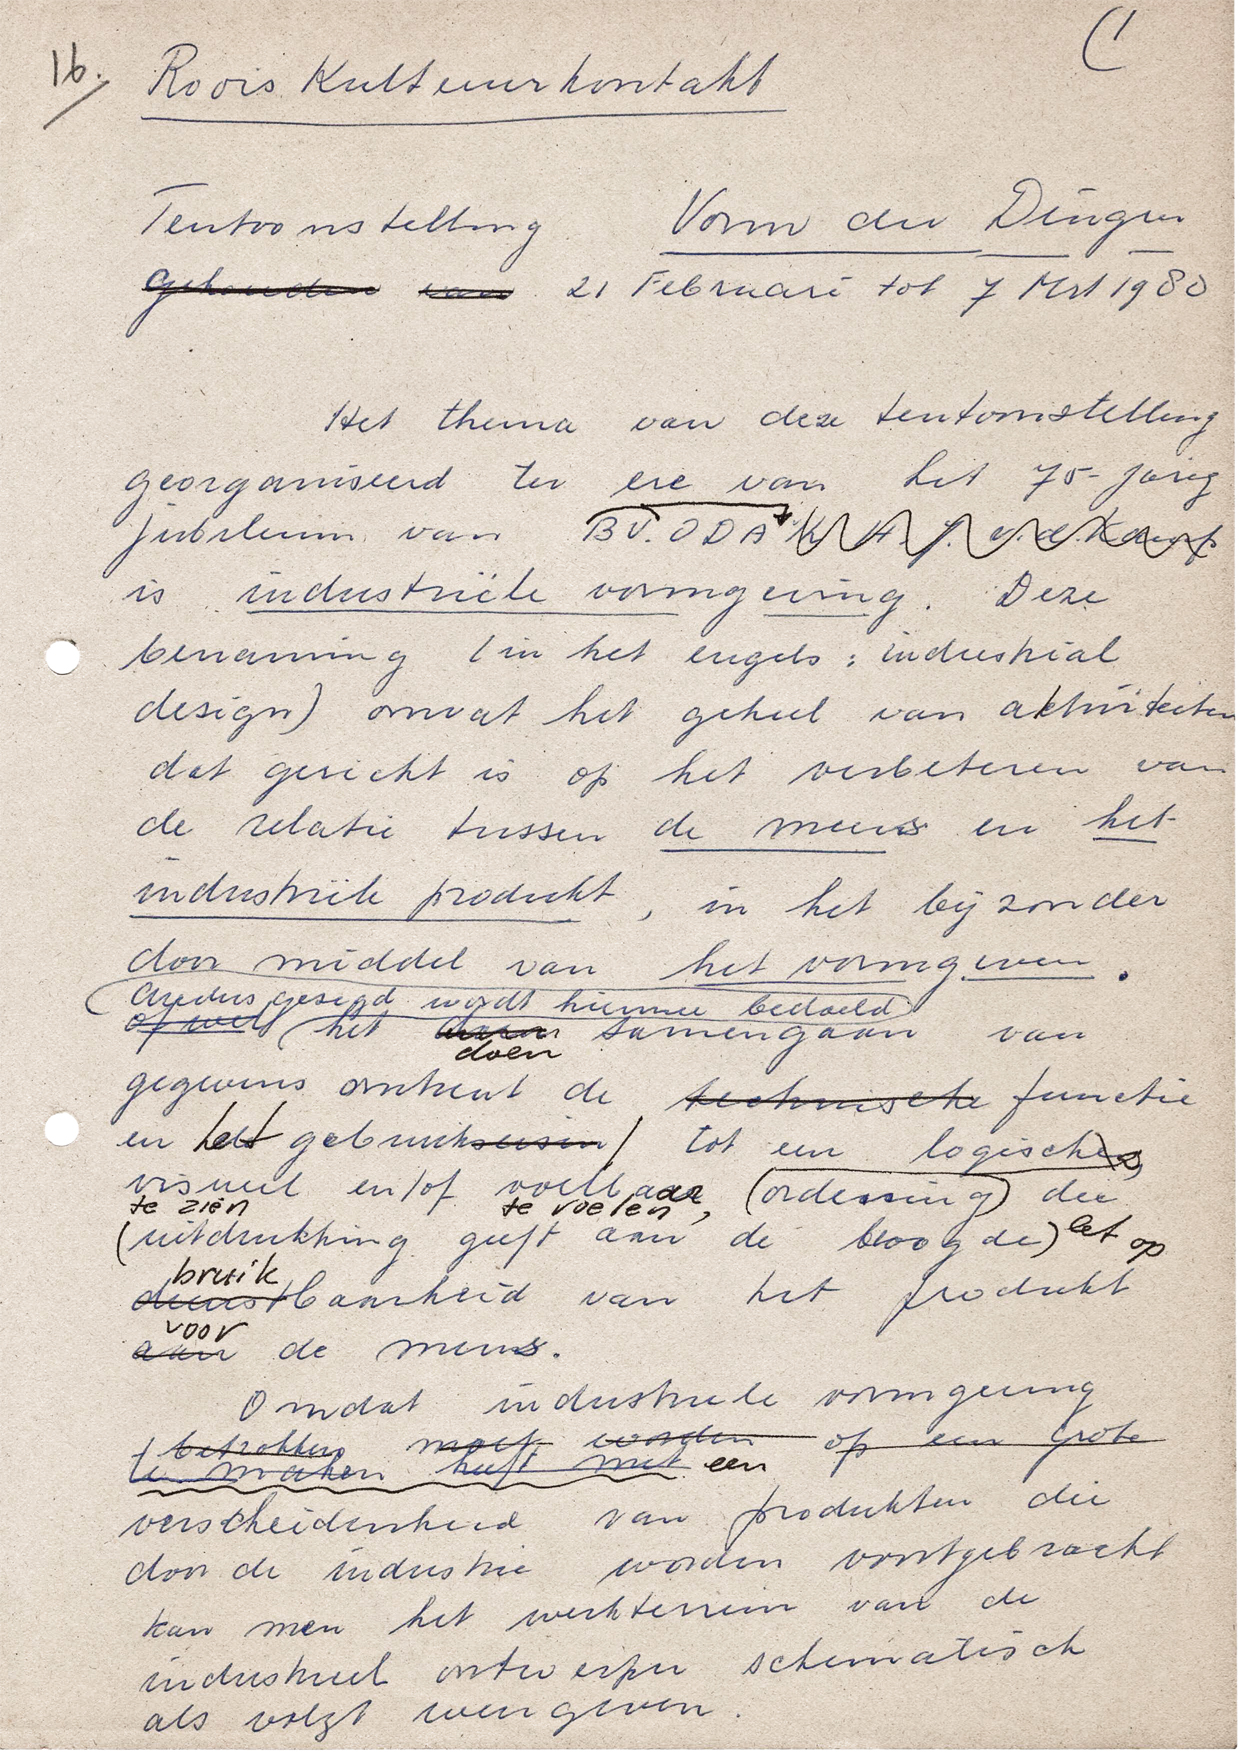 16.
(1
Roois Kultuurkontakt
Tentoonstelling Vorm der Dingen
gehouden van 21 Februari tot 7 Mrt 1980
Het thema van deze tentoonstelling
georganiseerd ter ere van het 75-jarig
jubileum van BV. ODA K H. J. v.d. Kamp
is industriële vormgeving. Deze
benaming (in het engels: industrial
design) omvat het geheel van aktiviteiten
dat gericht is op het verbeteren van
de relatie tussen de mens en het
industriële produkt, in het bijzonder
door middel van het vormgeven.
Anders gezegd wordt hiermee bedoeld
ofwel (het samengaan van
doen
gegevens omtrent de technische functie
en het gebruikseisen / tot een logisch
visueel en/of voelbaar, (ordening) die
te zien te voelen
(uitdrukking geeft aan de beoogde) let op
bruik
dienstbaarheid van het produkt
voor
aan de mens.
Omdat industriele vormgeving
betrokken moet worden op een grote
te maken heeft met een
verscheidenheid van produkten die
door de industrie worden voortgebracht
kan men het werkterrein van de
industrieel ontwerper schematisch
als volgt weergeven.